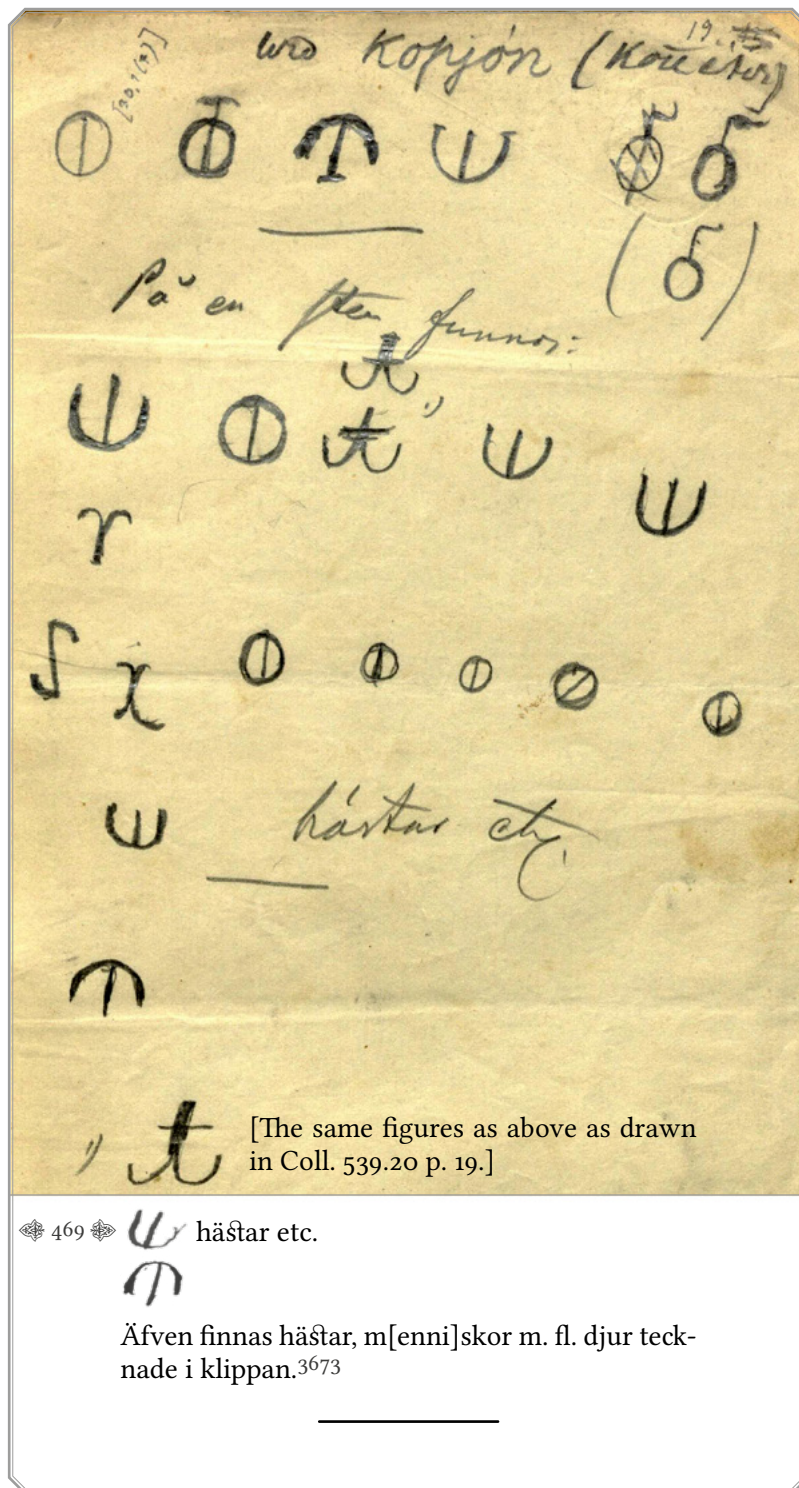 19.
[20,1(2)]
wid Kopjón (
På en sten funnos:
hástar etc
[The same figures as above as drawn
in Coll. 539.20 p. 19.]
469 hästar etc.
Äfven finnas hästar, m[enni]skor m. fl. djur teck-
nade i klippan.3673